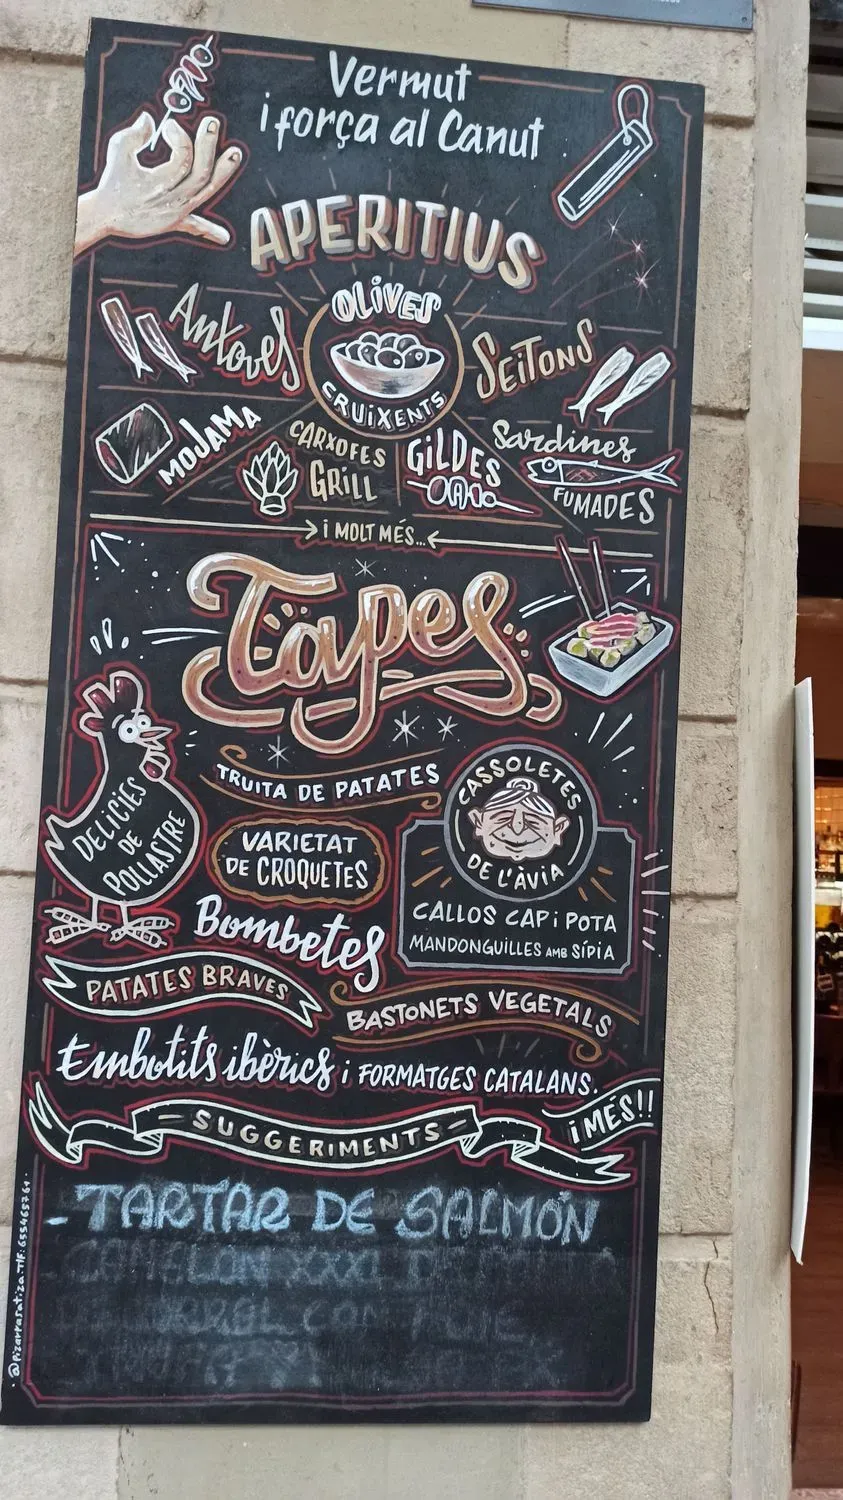 Vermut
i força al Canut
APERITIUS
Antxoves
OLIVES
CRUIXENTS
SEITONS
MOJAMA
CARXOFES
GRILL
GILDES
Sardines
FUMADES
I MOLT MÉS...
Tapes
DELÍCIES
DE
POLLASTRE
TRUITA DE PATATES
VARIETAT
DE CROQUETES
Bombetes
CASSOLETES
DE L'ÀVIA
CALLOS CAP i POTA
MANDONGUILLES AMB SÍPIA
PATATES BRAVES
BASTONETS VEGETALS
Embotits ibèrics i FORMATGES CATALANS.
i MÉS!!
- SUGGERIMENTS -
- TARTAR DE SALMÓN
@pizarrasatiza. Tlf: 655465761